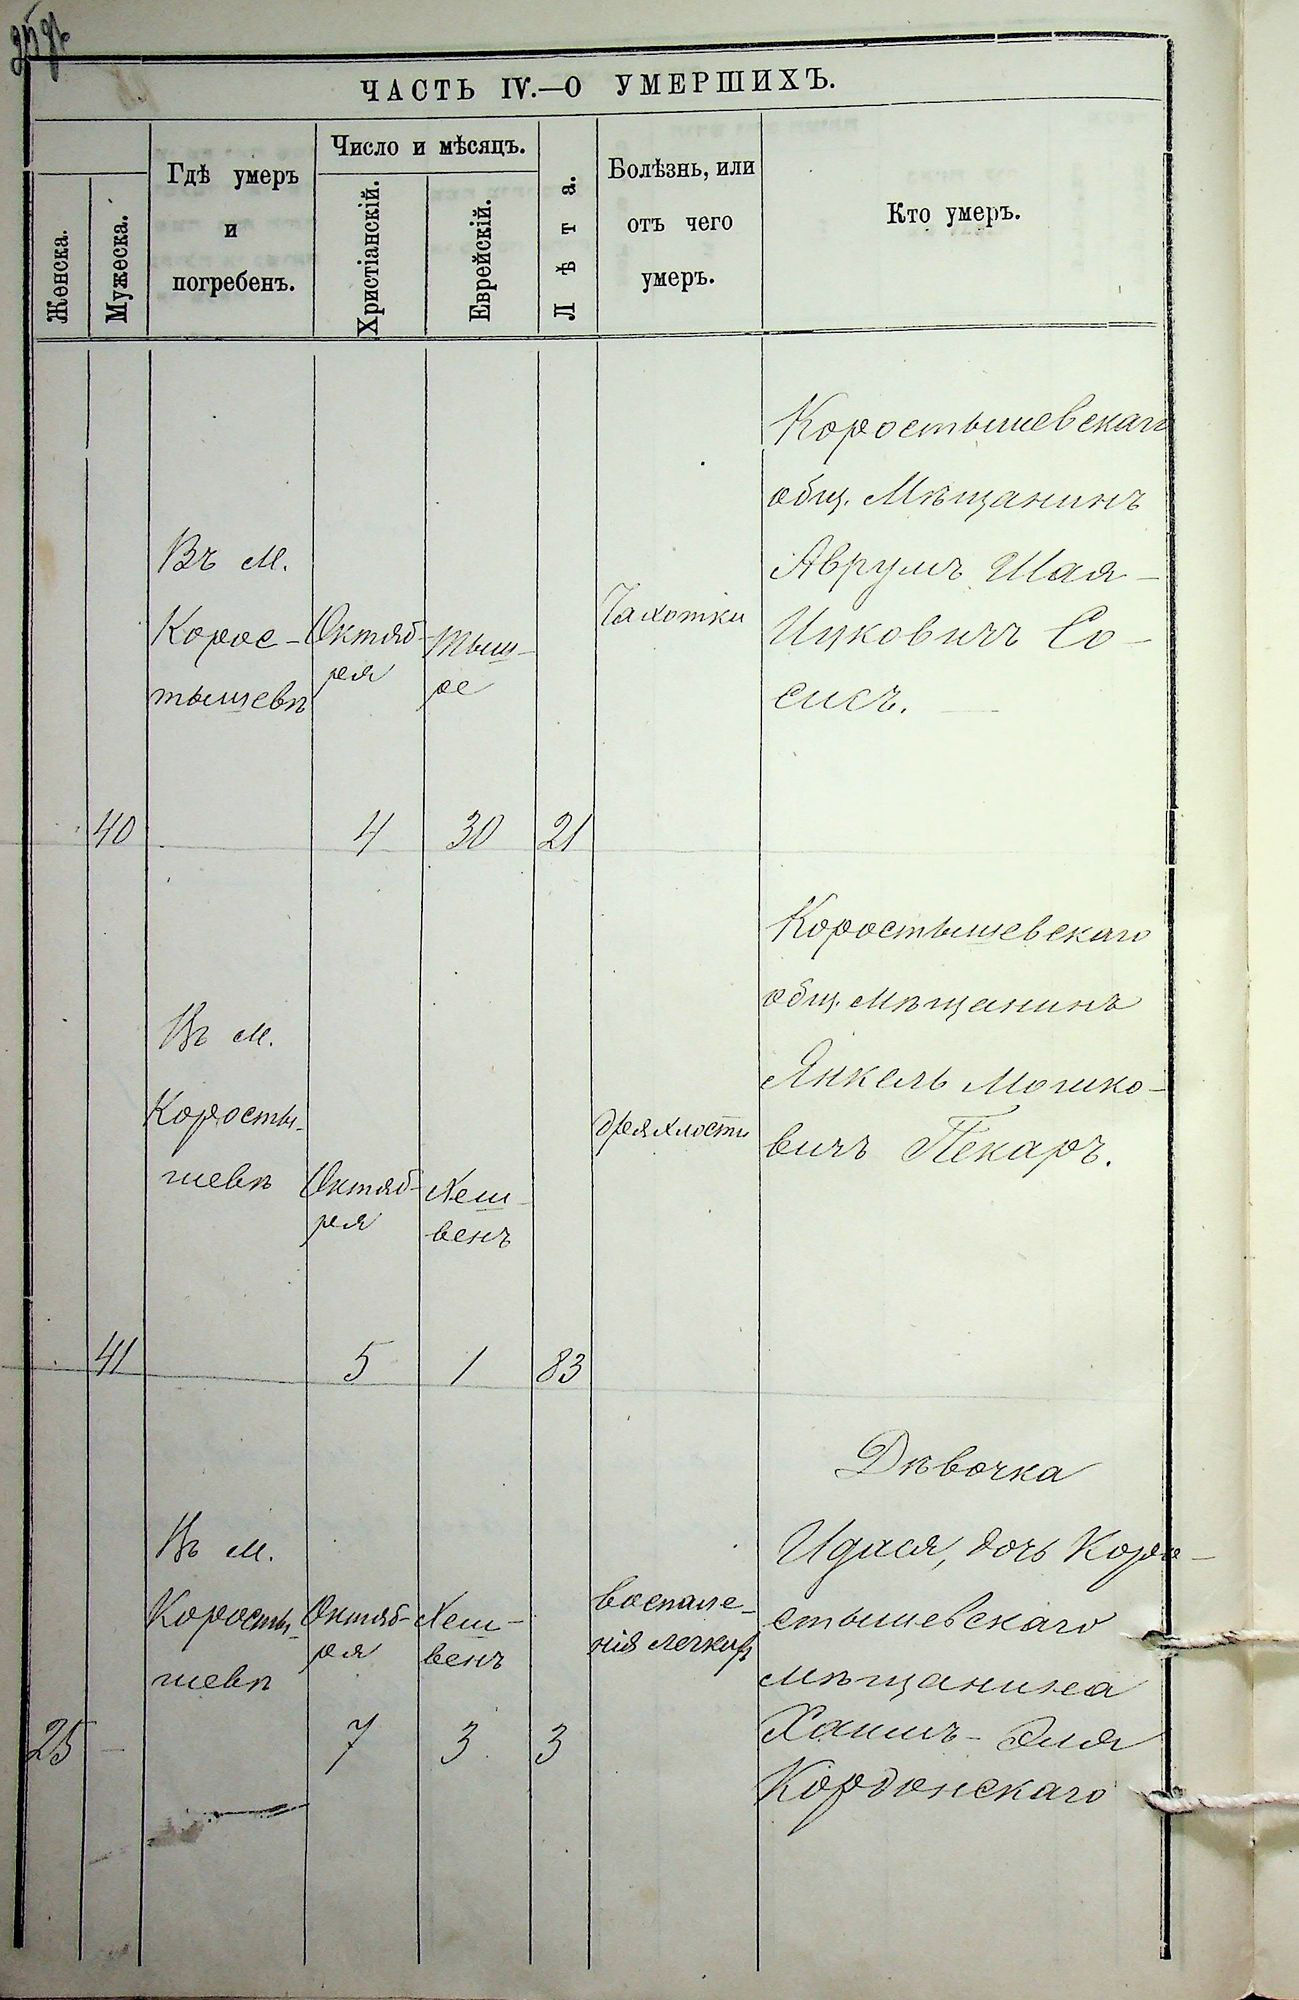 ЧАСТЬ IV.—О УМЕРШИХЪ.
Женска.
Мужеска.
Гдѣ умеръ
и
погребенъ.
Число и мѣсяцъ.
Христіанскій.
Еврейскій.
Лѣта.
Болѣзнь, или
отъ чего
умеръ.
Кто умеръ.
Въ м.
Корос-
тышевѣ
Октяб-
ря
Тыш-
ре
Чахотки
Коростышевскаго
общ. Мѣщанинъ
Аврумъ Шая-
Ицковичъ Со-
сисъ.
40
4
30
21
Въ м.
Коросты-
шевѣ
Октяб-
ря
Хеш-
венъ
дряхлости
Коростышевскаго
общ. мѣщанинъ
Янкель Мошко-
вичъ Пекаръ.
41
5
1
83
Въ м.
Коросты-
шевѣ
Октяб-
ря
Хеш-
венъ
воспале-
нія легкихъ
Дѣвочка
дочь Коро-
стышевскаго
мѣщанина
Хаимъ-Эля
Кордонскаго
25
7
3
3